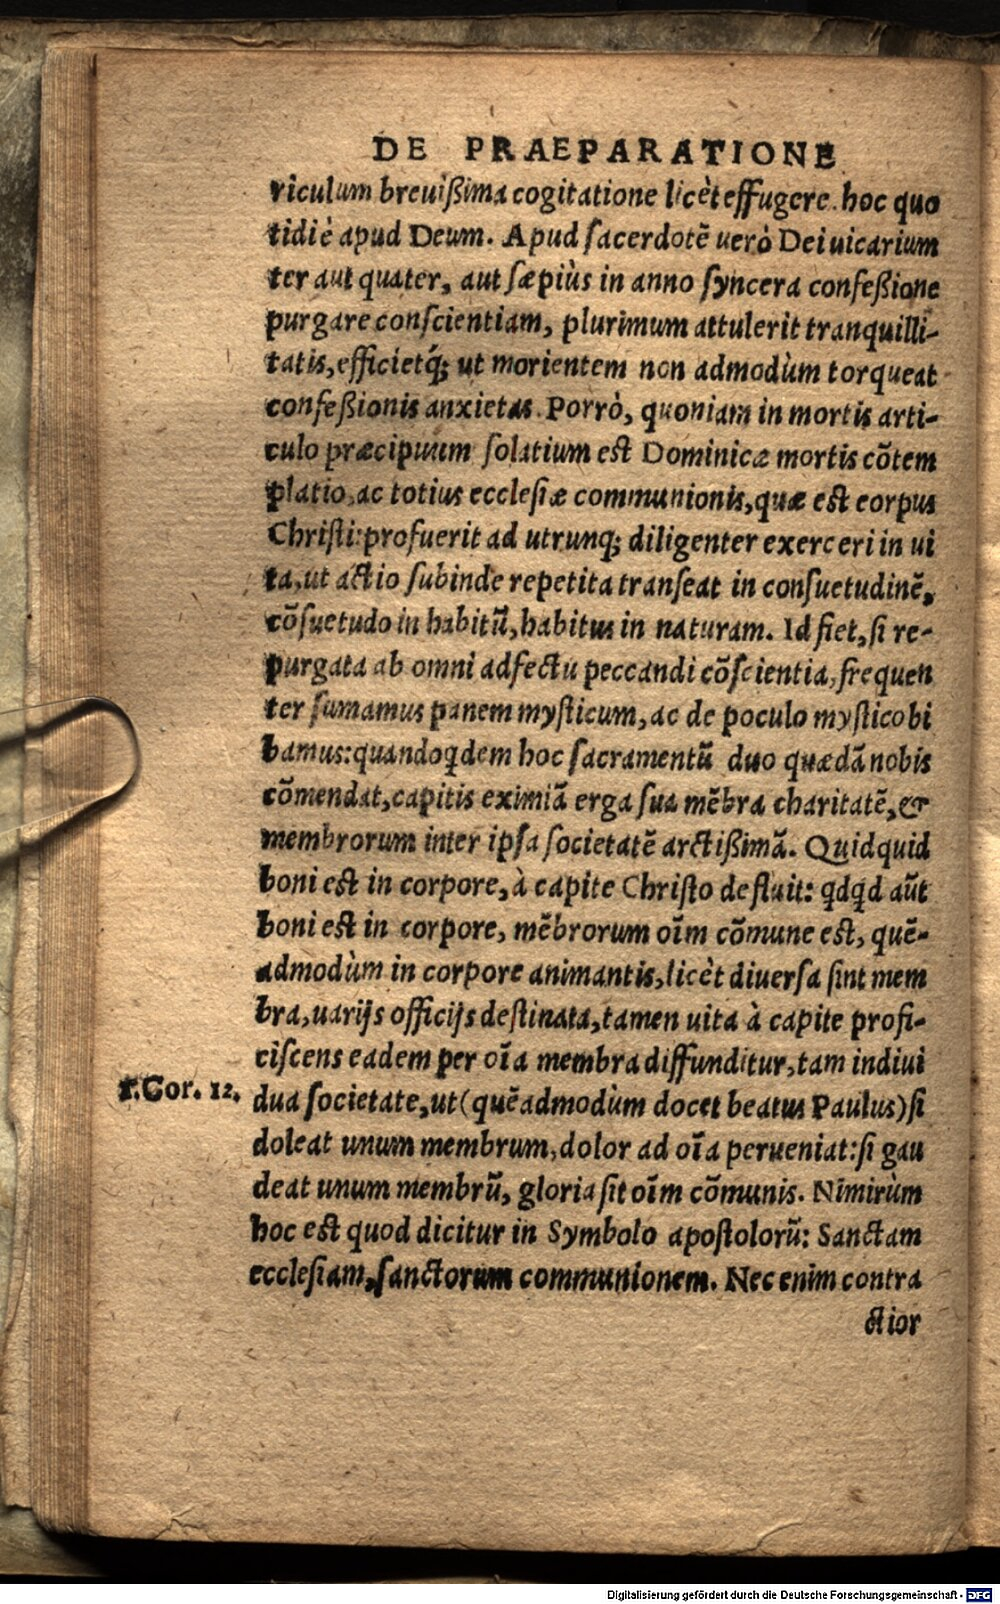 DE PRAEPARATIONE
riculum breuißima cogitatione licèt effugere. hoc quo
tidiè apud Deum. Apud ſacerdotẽ uerò Dei uicarium
ter aut quater, aut ſæpiùs in anno ſyncera confeßione
purgare conſcientiam, plurimum attulerit tranquilli-
tatis, efficietq́; ut morientem non admodùm torqueat
confeßionis anxietas. Porrò, quoniam in mortis arti-
culo præcipuum ſolatium est Dominicæ mortis cõtem
platio, ac totius eccleſiæ communionis, quæ est corpus
Chriſti: profuerit ad utrunq; diligenter exerceri in ui
ta, ut actio ſubinde repetita tranſeat in conſuetudinẽ,
cõſuetudo in habitũ, habitus in naturam. Id fiet, ſi re-
purgata ab omni adfectu peccandi cõſcientia, frequen
ter ſumamus panem myſticum, ac de poculo myſtico bi
bamus: quandoq̃dem hoc ſacramentũ duo quædã nobis
cõmendat, capitis eximiã erga ſua mẽbra charitatẽ, &
membrorum inter ipſa ſocietatẽ arctißimã. Quidquid
boni est in corpore, à capite Chriſto defluit: q̃dq̃d aũt
boni est in corpore, mẽbrorum oĩm cõmune est, quẽ-
admodùm in corpore animantis, licèt diuerſa ſint mem
bra, uarijs officijs deſtinata, tamen uita à capite profi-
ciſcens eadem per oĩa membra diffunditur, tam indiui
1. Cor. 12.
dua ſocietate, ut (quẽadmodùm docet beatus Paulus) ſi
doleat unum membrum, dolor ad oĩa perueniat: ſi gau
deat unum membrũ, gloria ſit oĩm cõmunis. Nimirùm
hoc est quod dicitur in Symbolo apoſtolorũ: Sanctam
eccleſiam, ſanctorum communionem. Nec enim contra
ctior
Digitalisierung gefördert durch die Deutsche Forschungsgemeinschaft - DFG